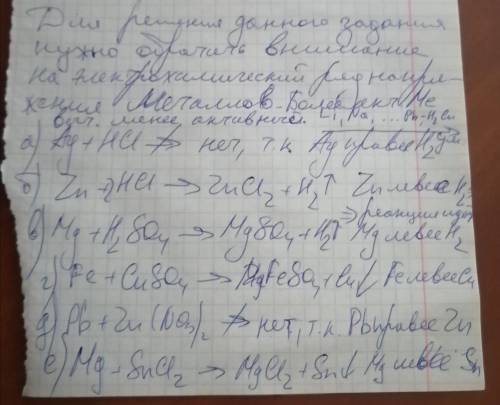 Для решения данного задания
нужно обратить внимание
на электрохимический ряд напря-
жения Металлов. Более акт Ме
выт. менее активного. Li, Na, ... Pb-H, Cu
а) Ag + HCl ↛ нет, т.к. Ag правее H2
б) Zn + 2HCl → ZnCl2 + H2↑ Zn левее H2
⇒ реакция идёт
в) Mg + H2SO4 → MgSO4 + H2↑ Mg левее H2
г) Fe + CuSO4 → FeSO4 + Cu↓ Fe левее Cu
д) Pb + Zn(NO3)2 ↛ нет, т.к. Pb правее Zn
е) Mg + SnCl2 → MgCl2 + Sn↓ Mg левее Sn